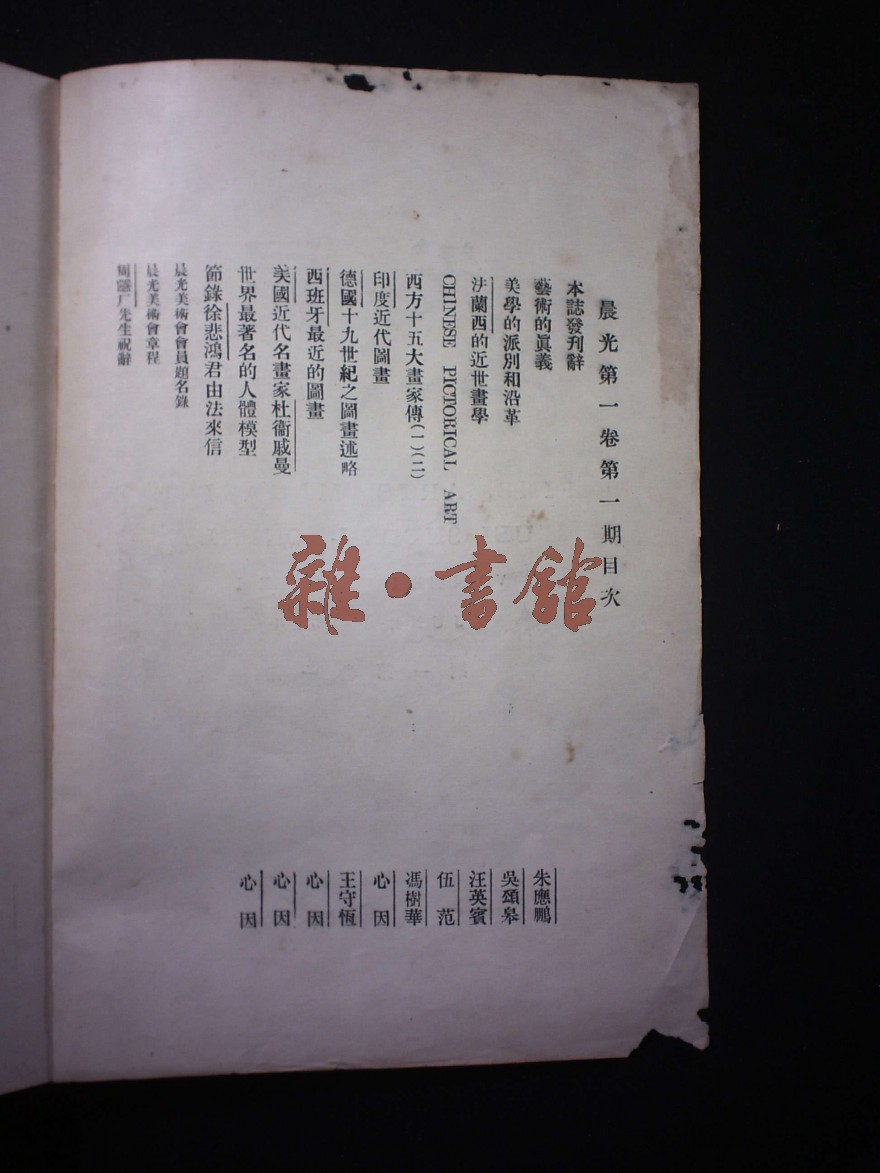 晨光第一卷第一期目次
本誌發刊辭
藝術的眞義 朱應鵬
美學的派別和沿革 吳頌皋
法蘭西的近世畫學 汪英賓
CHINESE PICTORICAL ART 伍范
西方十五大畫家傳(一)(二) 馮樹華
印度近代圖畫 心因
德國十九世紀之圖畫述略 王守恆
西班牙最近的圖畫 心因
美國近代名畫家杜衞戚曼 心因
世界最著名的人體模型 心因
節錄徐悲鴻君由法來信
晨光美術會會員題名錄
晨光美術會章程
周厂先生祝辭
雜·書館